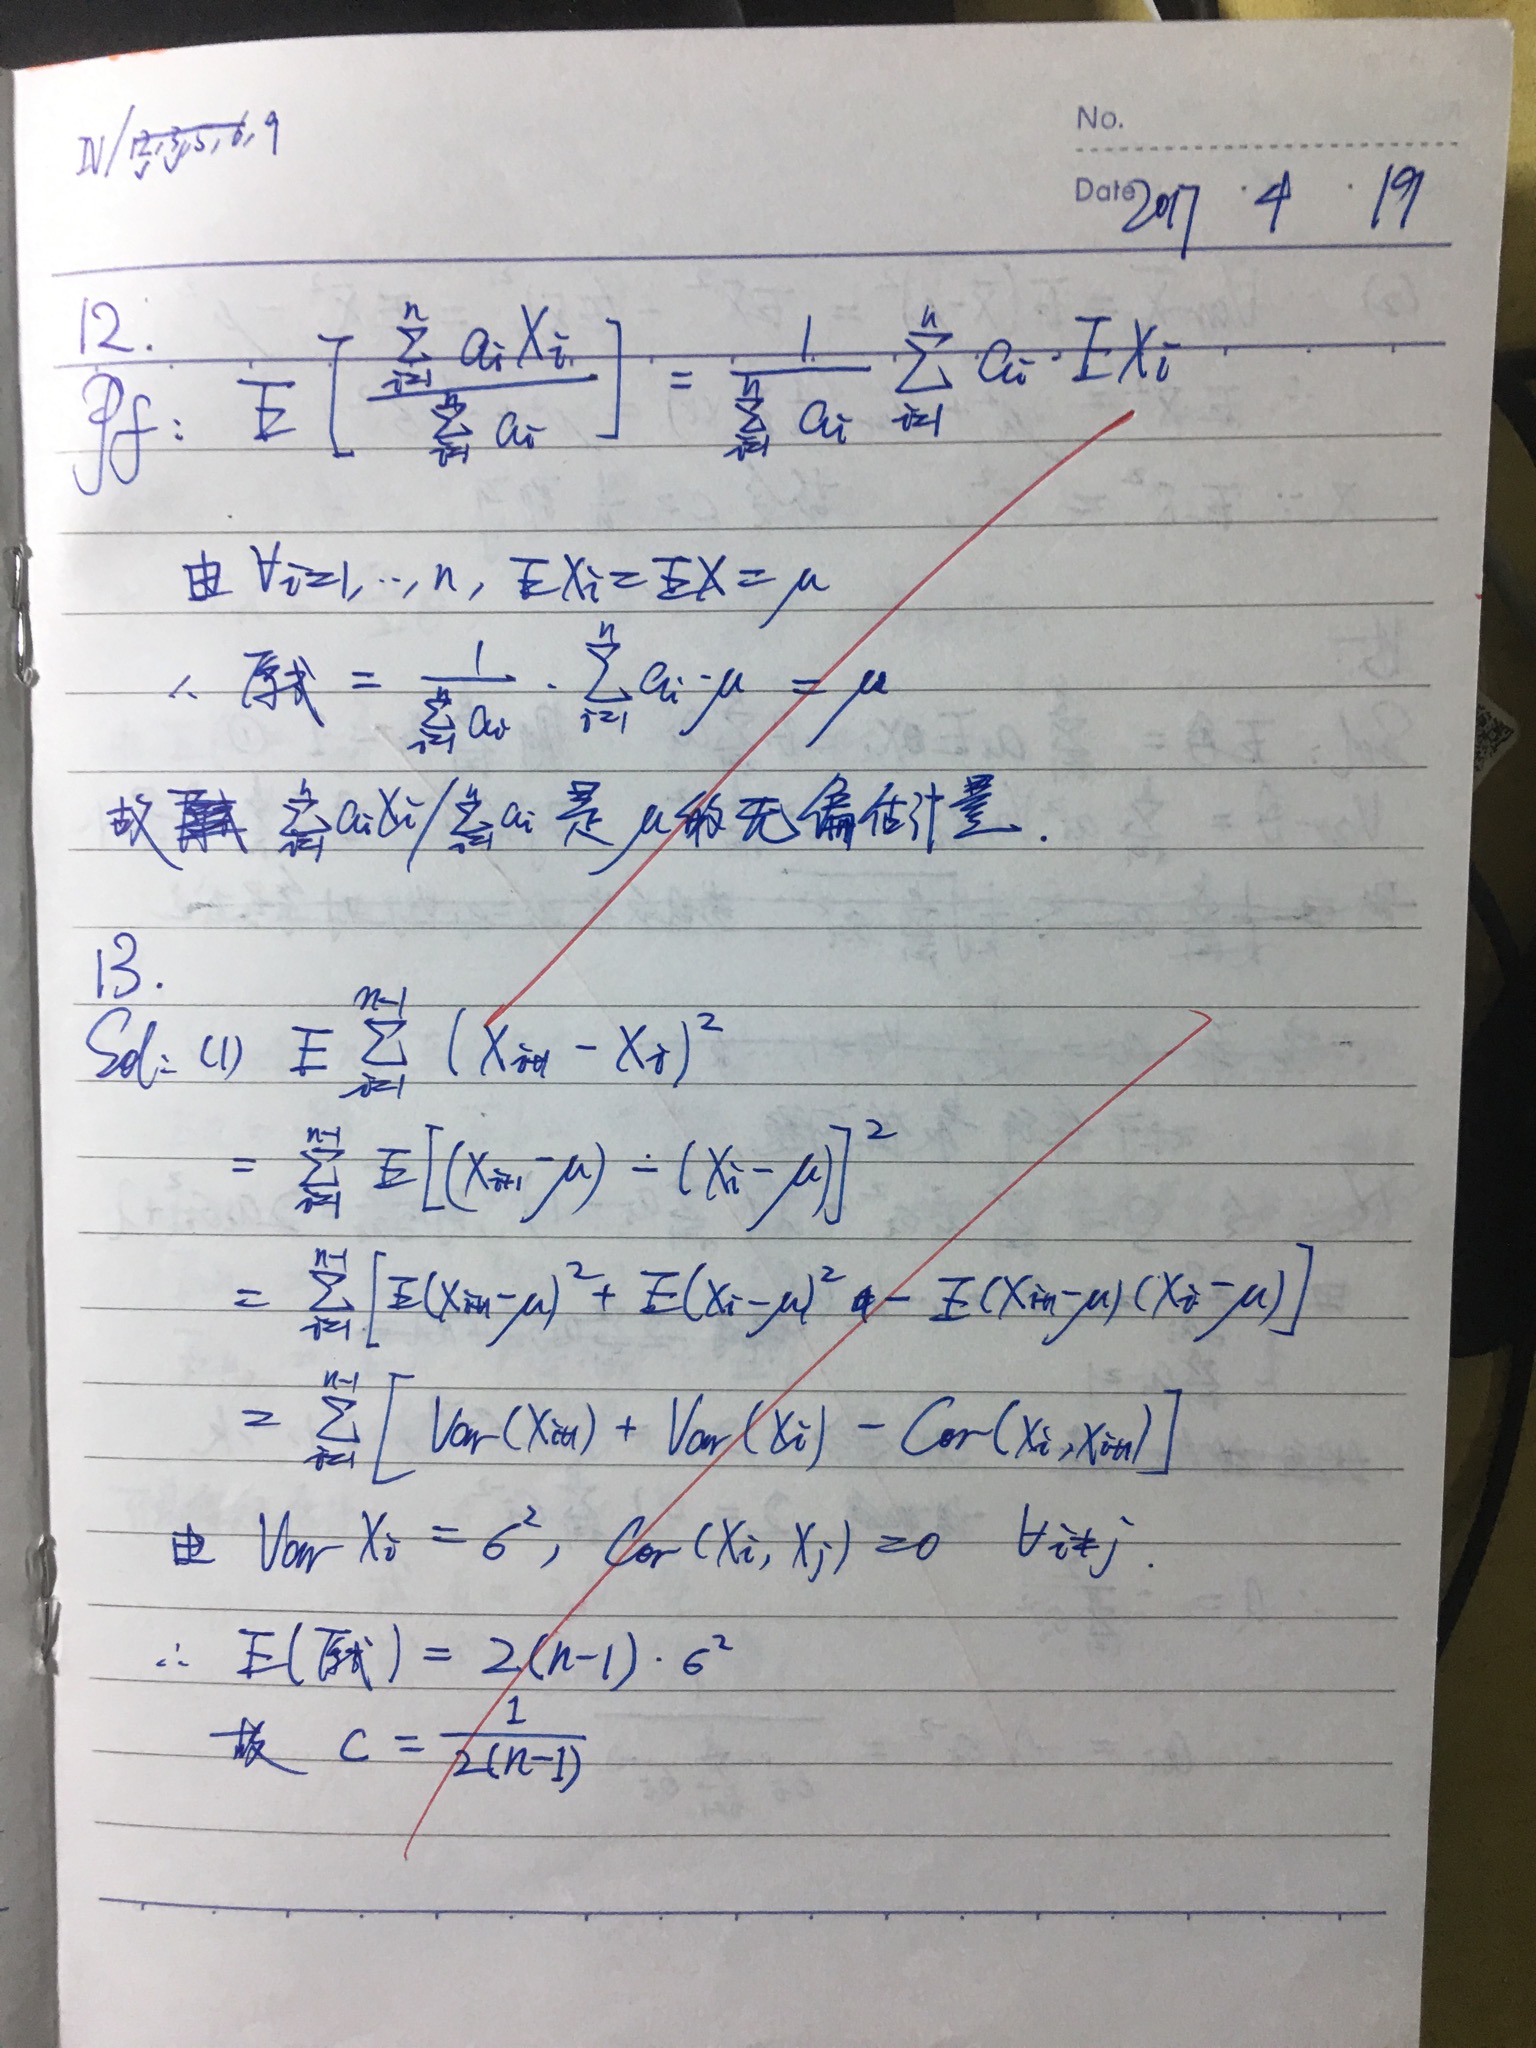 No.
Date 2017 · 4 · 19
12.
Pf: E[ \sum_{i=1}^{n} a_i X_i / \sum_{i=1}^{n} a_i ] = 1/(\sum_{i=1}^{n} a_i) \sum_{i=1}^{n} a_i · E X_i
由 ∀i=1,…,n, EX_i = EX = μ
∴ 原式 = 1/(\sum_{i=1}^{n} a_i) · \sum_{i=1}^{n} a_i · μ = μ
故 \sum_{i=1}^{n} a_i X_i / \sum_{i=1}^{n} a_i 是 μ 的无偏估计量.
13.
Sol: (1) E \sum_{i=1}^{n-1} (X_{i+1} - X_i)^2
= \sum_{i=1}^{n-1} E[(X_{i+1} - μ) - (X_i - μ)]^2
= \sum_{i=1}^{n-1} [E(X_{i+1} - μ)^2 + E(X_i - μ)^2 - E(X_{i+1} - μ)(X_i - μ)]
= \sum_{i=1}^{n-1} [Var(X_{i+1}) + Var(X_i) - Cov(X_i, X_{i+1})]
由 Var X_i = σ^2, Cov(X_i, X_j) = 0 ∀i≠j.
∴ E(原式) = 2(n-1) · σ^2
故 c = 1/(2(n-1))